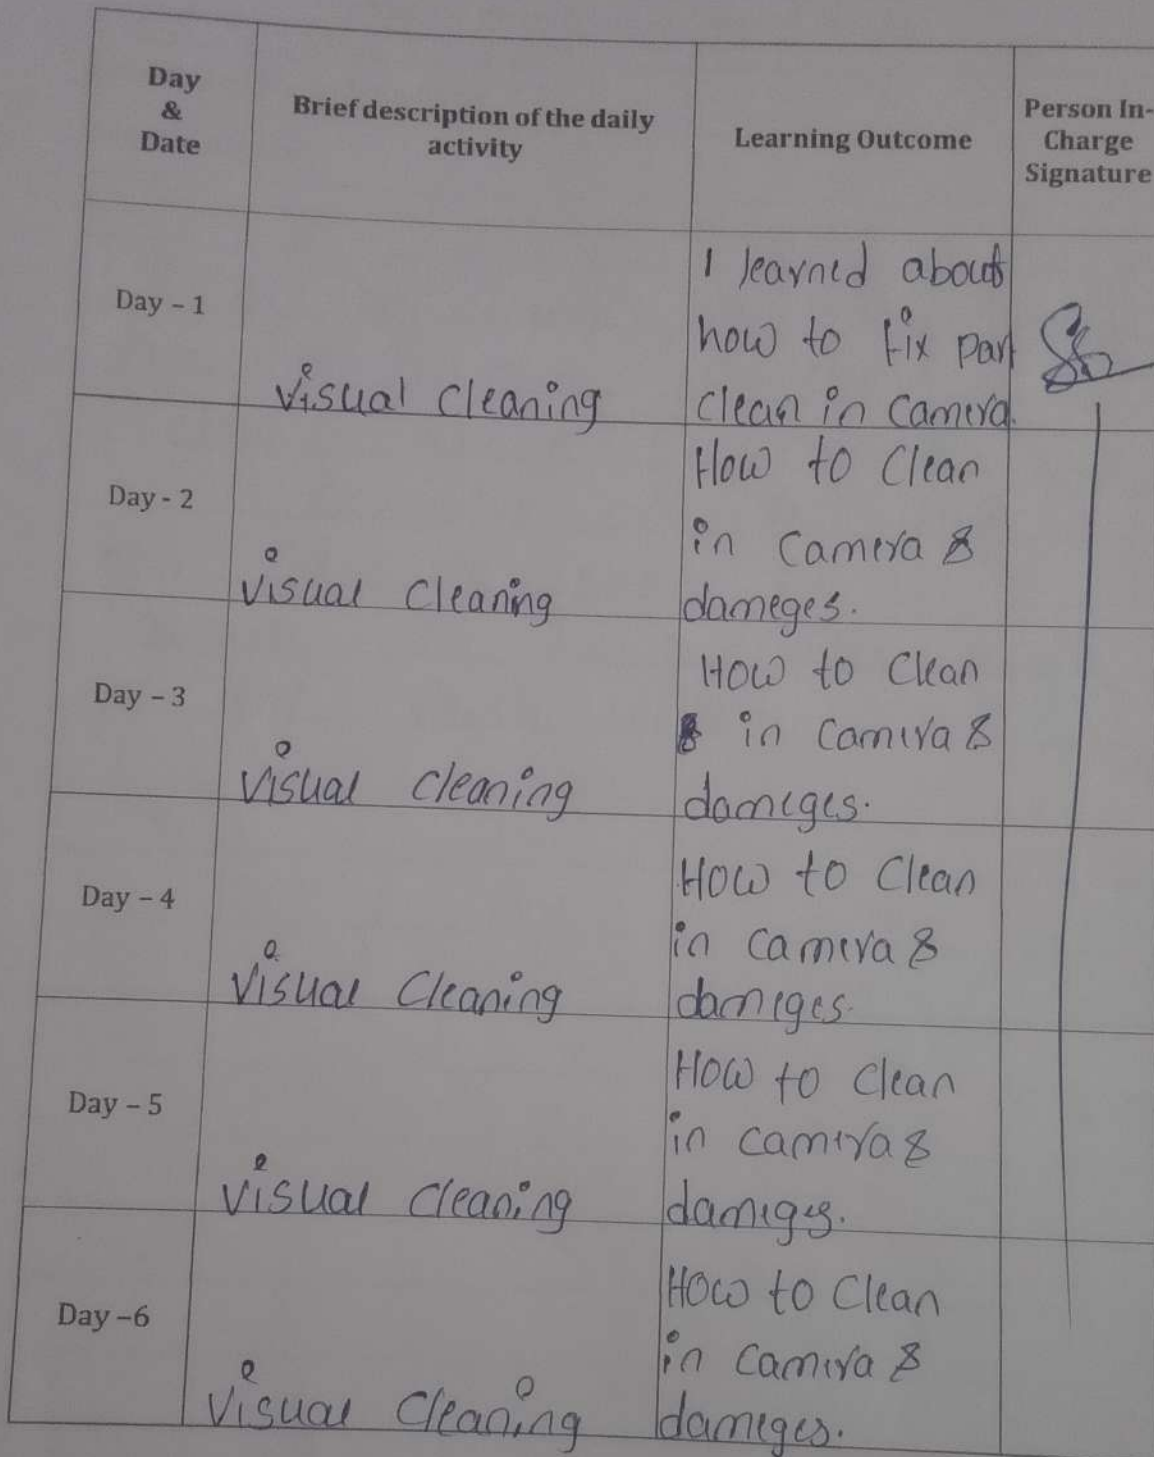 Day
&
Date
Brief description of the daily
activity
Learning Outcome
Person In-
Charge
Signature
Day – 1
visual cleaning
I learned about
how to fix part
clean in camera.
Day - 2
visual cleaning
How to clean
in camera &
dameges.
Day – 3
visual cleaning
How to clean
in camera &
dameges.
Day – 4
visual cleaning
How to clean
in camera &
dameges.
Day – 5
visual cleaning
How to clean
in camera &
dameges.
Day –6
visual cleaning
How to clean
in camera &
dameges.